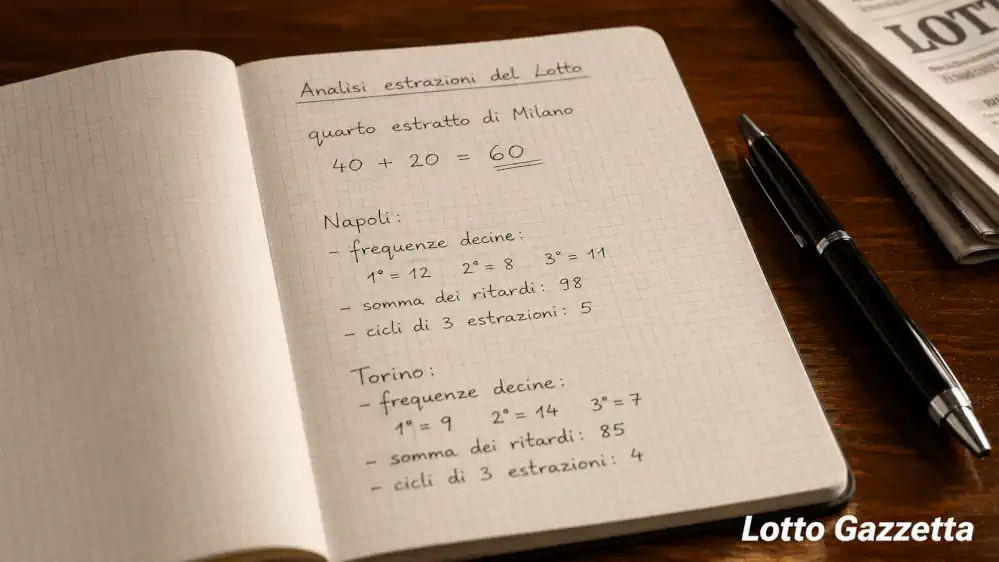 Analisi estrazioni del Lotto
quarto estratto di Milano
40 + 20 = 60
Napoli:
- frequenze decine:
1° = 12 2° = 8 3° = 11
- somma dei ritardi: 98
- cicli di 3 estrazioni: 5
Torino:
- frequenze decine:
1° = 9 2° = 14 3° = 7
- somma dei ritardi: 85
- cicli di 3 estrazioni: 4
LOTT
Lotto Gazzetta